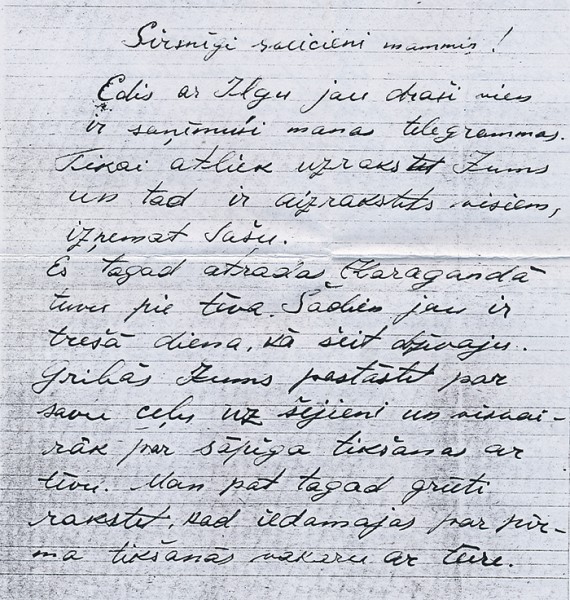 Sirsnīgi sveicieni mammiņ!
Edis ar Ilgu jau droši vien
ir saņēmuši manas telegrammas.
Tikai atliek uzrakstīt Jums
un tad ir aizrakstīts visiem,
izņemot Sašu.
Es tagad atrodas Karagandā
tuvu pie tēva. Šodien jau ir
trešā diena, kā šeit dzīvoju.
Gribās Jums pastāstīt par
savu ceļu uz šejieni un visvai-
rāk par sāpīgo tikšanos ar
tēvu. Man pat tagad grūti
rakstīt, kad iedomājos par pir-
mo tikšanās vakaru ar tēvu.